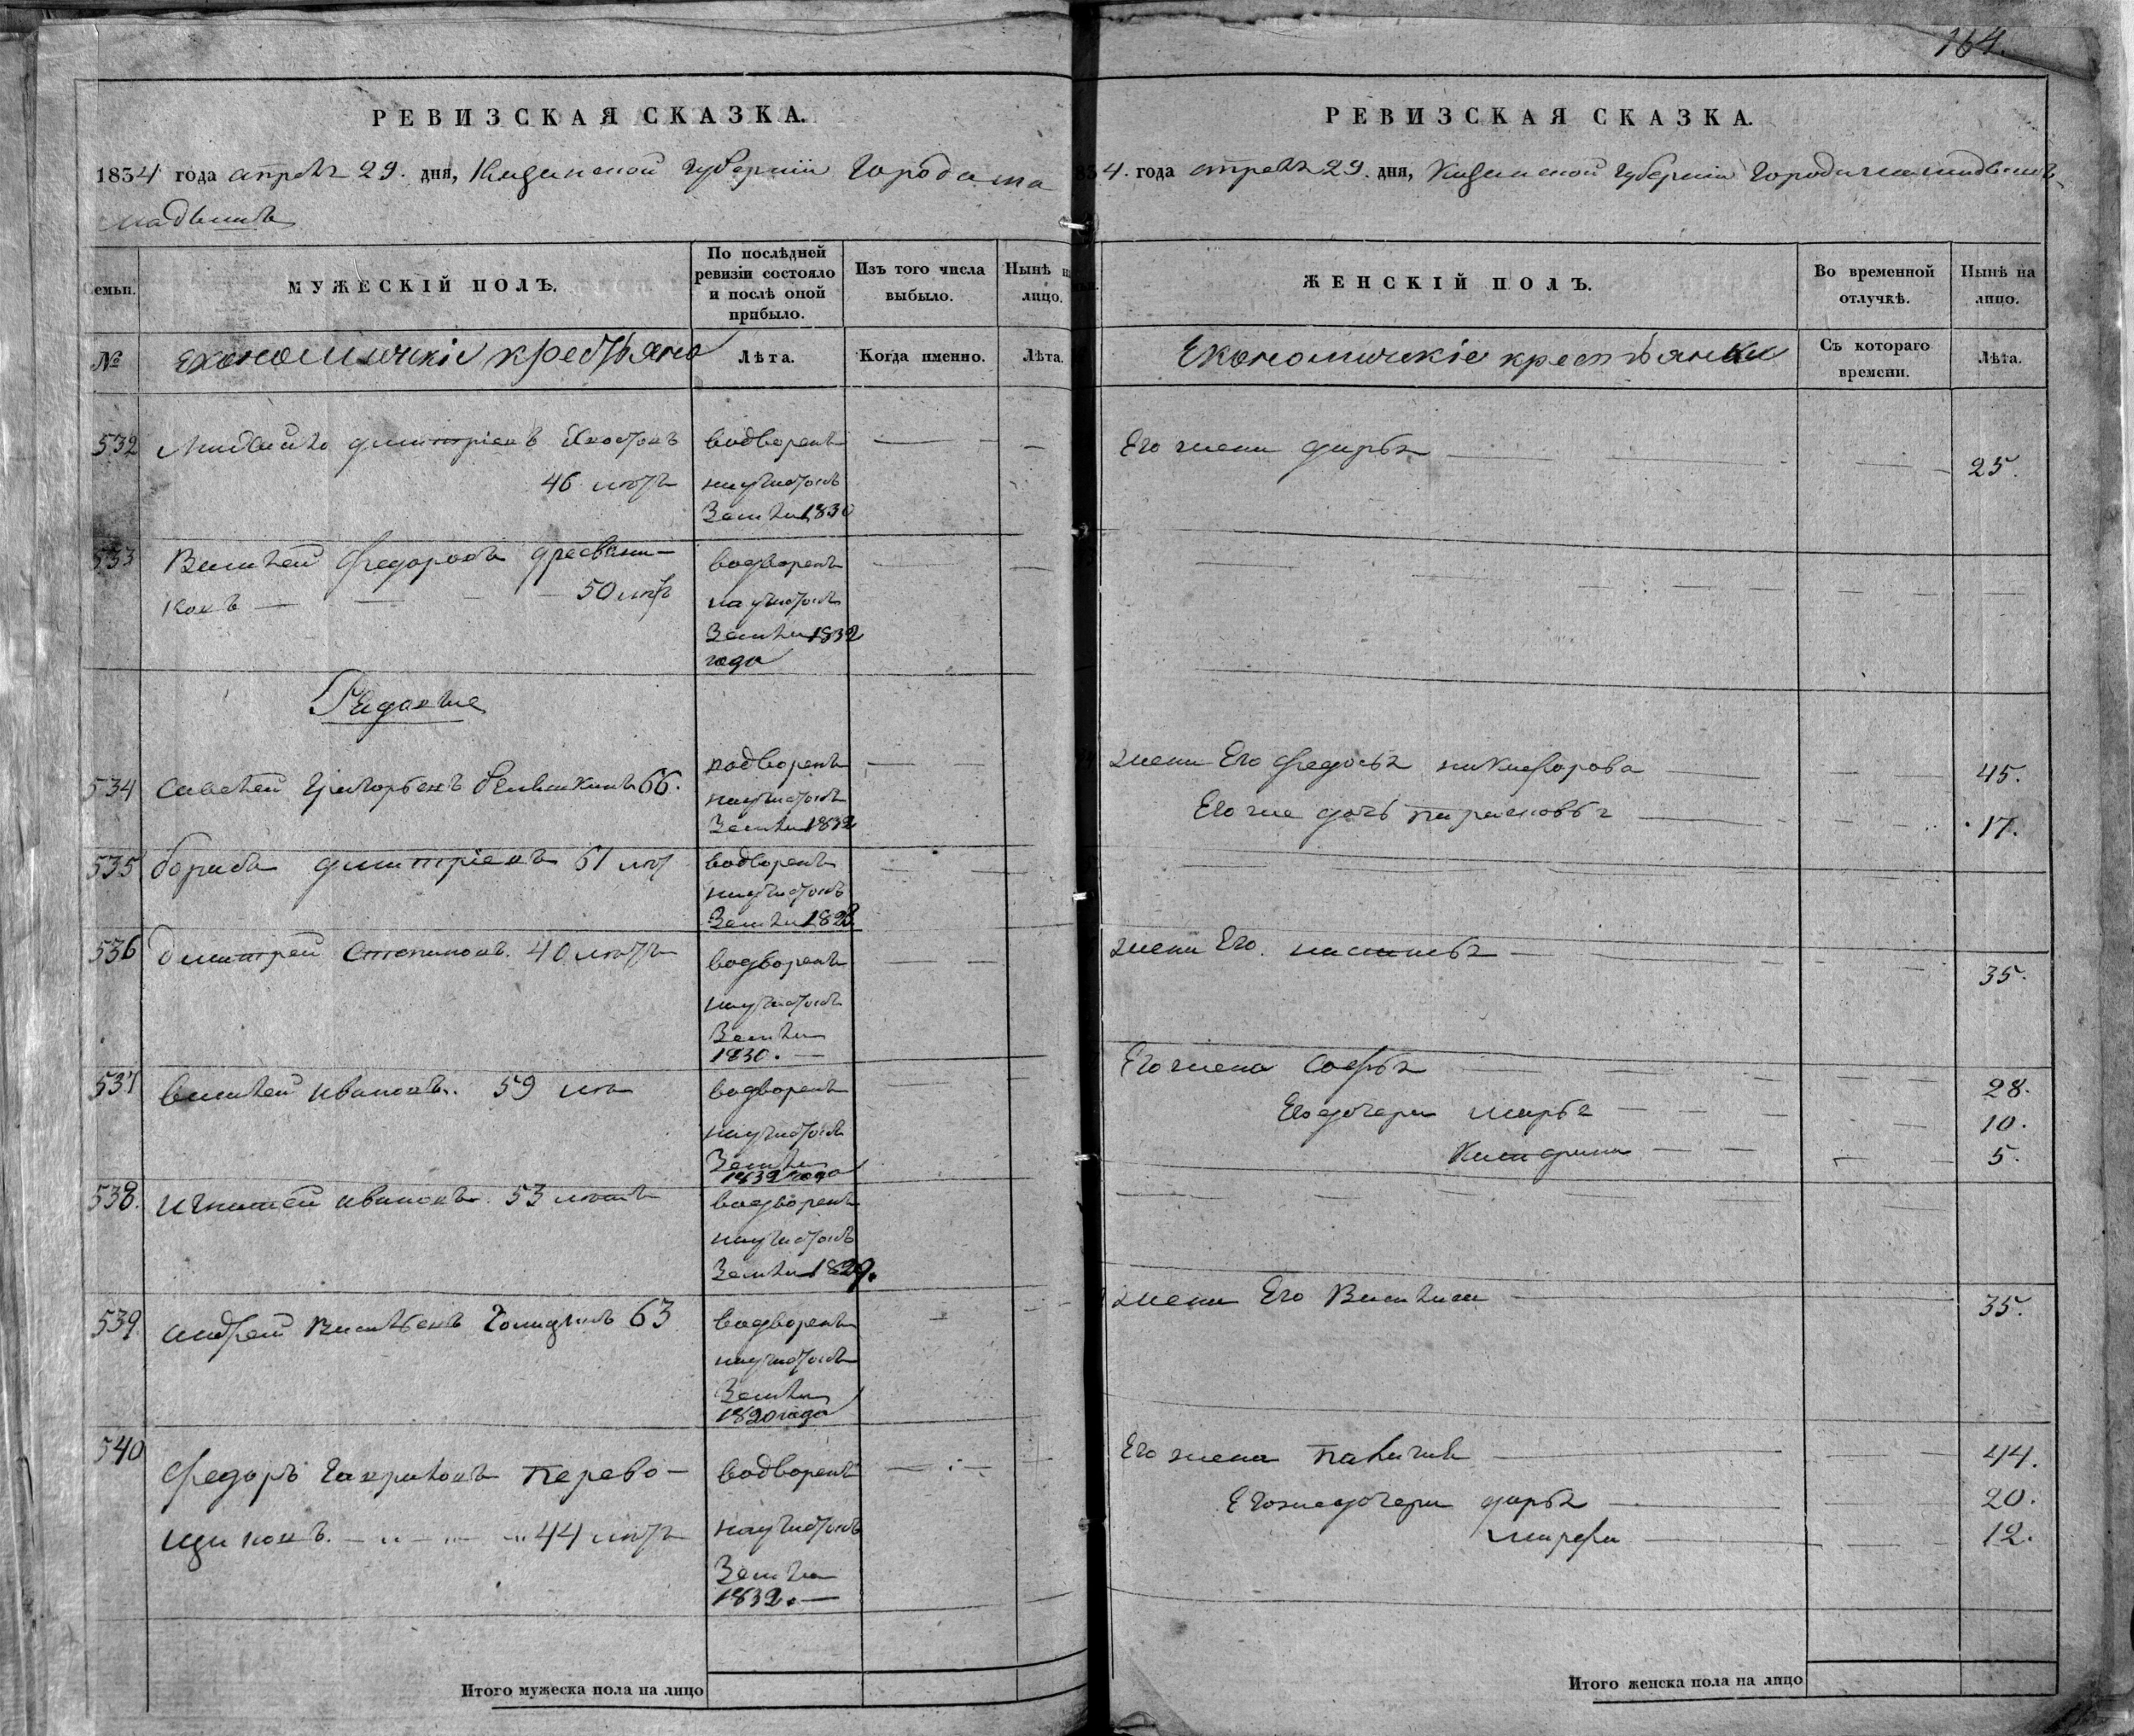 164.
РЕВИЗСКАЯ СКАЗКА.
1834 года апреля 29. дня, Казанской губернии города
МУЖЕСКІЙ ПОЛЪ.
По послѣдней ревизіи состояло и послѣ оной прибыло.
Изъ того числа выбыло.
Нынѣ
лицо.
№
Економическіе крестьяна
Лѣта.
Когда именно.
Лѣта.
532
Дмитріевъ
46 летъ
водворенъ
на участокъ
земли 1830
533
Василей Федоровъ Дресвени-
ковъ — 50 летъ
водворенъ
на участокъ
земли 1832
года
Рядовые
534
Савелей Григорьевъ 66.
водворенъ
на участокъ
земли 1832
535
Борисъ Дмитріевъ 61 лет
водворенъ
на участокъ
земли 1828
536
Дмитрей Степановъ. 40 летъ
водворенъ
на участокъ
земли
1830. —
537
Василей Ивановъ. 59 ле
водворенъ
на участокъ
земли
1832 года
538.
Игнатей Ивановъ. 53 летъ
водворенъ
на участокъ
земли 1829.
539
Андрей Васильевъ 63
водворенъ
на участокъ
земли
1820 года
540
Федоръ Гавриловъ Перево-
щиковъ. — 44 летъ
водворенъ
на участокъ
земли
1832. —
Итого мужеска пола на лицо
РЕВИЗСКАЯ СКАЗКА.
4. года апреля 29. дня, Казанской губерніи города
ЖЕНСКІЙ ПОЛЪ.
Во временной отлучкѣ.
Нынѣ на лицо.
Економическіе крестьянки
Съ котораго времени.
Лѣта.
Его жена Дарья 25.
жена Его Федосья Никифорова 45.
Его же дочь Парасковья 17.
жена Его. Настасья 35.
Его жена Софья 28.
Его дочери Марья 10.
Катарина 5.
жена Его Василиса 35.
Его жена Палагия 44.
Его же дочери Дарья 20.
Марфа 12.
Итого женска пола на лицо